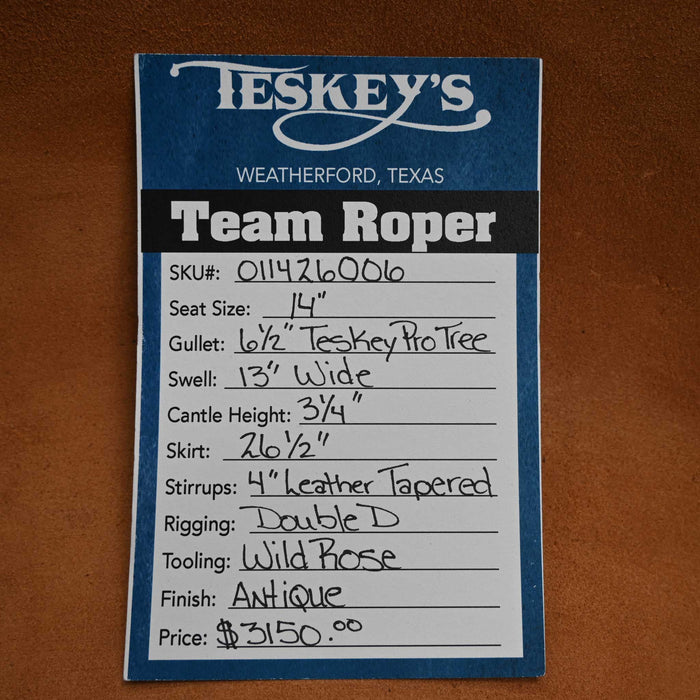 TESKEY'S
WEATHERFORD, TEXAS
Team Roper
SKU#: 011426006
Seat Size: 14"
Gullet: 6½" Teskey Pro Tree
Swell: 13" Wide
Cantle Height: 3¼"
Skirt: 26½"
Stirrups: 4" Leather Tapered
Rigging: Double D
Tooling: Wild Rose
Finish: Antique
Price: $3150.00